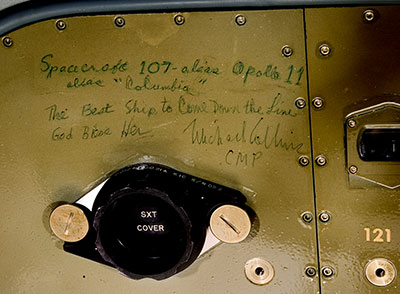 Spacecraft 107-alias Apolo 11
alias "Columbia"
The Best Ship to Come Down the Line
God Bless Her
Michael Collins
CMP
SXT
COVER
121